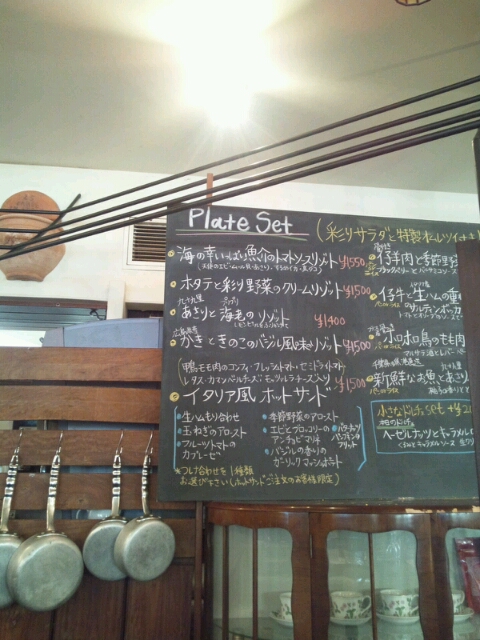 Plate Set
(彩りサラダと特製オムレツ付き
海の幸いっぱい魚介のトマトソースリゾット ¥1550
ホタテと彩り野菜のクリームリゾット ¥1500
あさりと海老のリゾット ¥1400
かきときのこのバジル風味リゾット ¥1500
(鴨モモ肉のコンフィ・フレッシュトマト・セミドライトマト・
レタス・カマンベールチーズ・モッツァレラチーズ入り) ¥1,500
イタリア風 ホットサンド
・生ハムもり合わせ
・玉ねぎのアロスト
・フルーツトマトの
カプレーゼ
・季節野菜のアロスト
・エビとブロッコリーの
アンチョビマヨネ
・バジルの香りの
ガーリックマッシュポテト
フリット
*つけ合わせを1種類
お選び下さい(ホットサンドご注文のお客様限定)
仔羊肉と季節野菜
仔牛と生ハムの重
サルティンボッカ
ホロホロ鳥のもも肉
新鮮なお魚とあさり
小さなドルチェ set +¥2
本日のドルチェ
ヘーゼルナッツとキャラメル